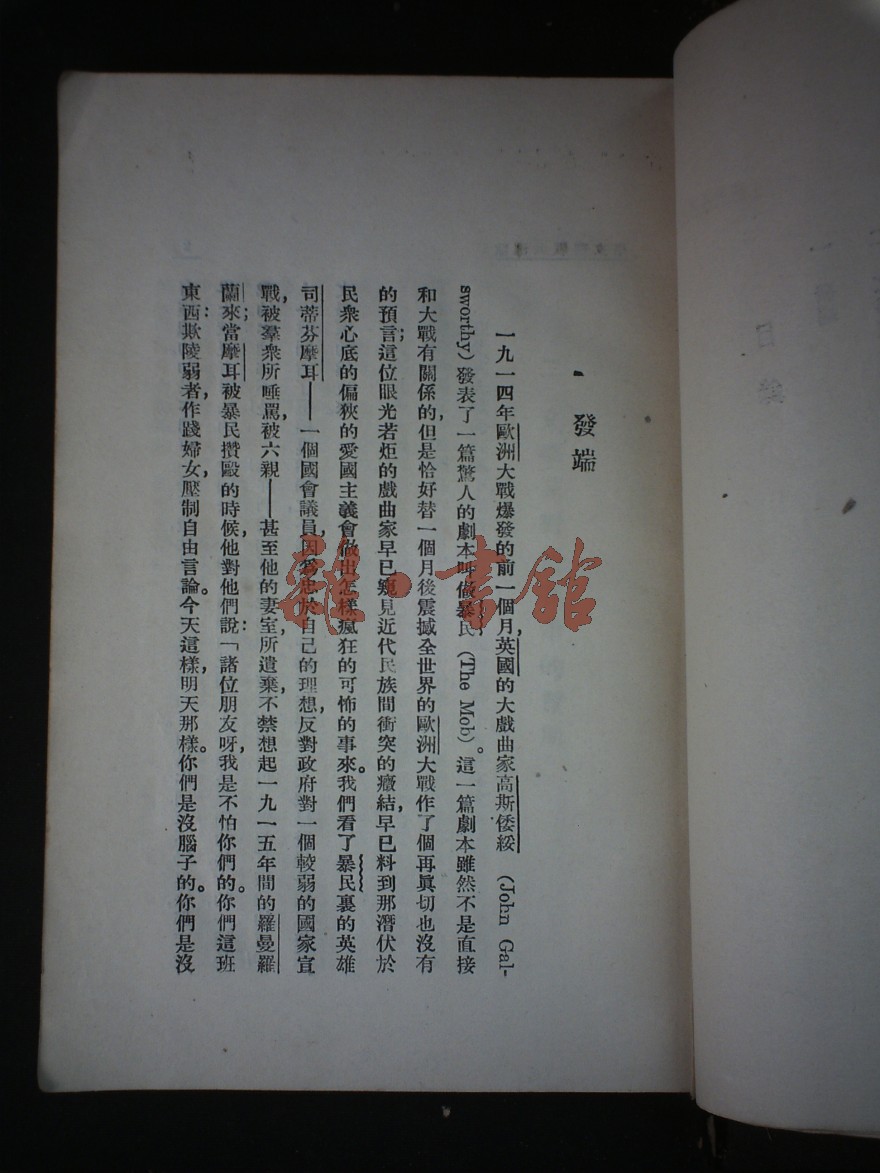 一 發端
一九一四年歐洲大戰爆發的前一個月,英國的大戲曲家高斯倭綏 (John Gal-
sworthy)發表了一篇驚人的劇本叫做暴民(The Mob)。這一篇劇本雖然不是直接
和大戰有關係的,但是恰好替一個月後震撼全世界的歐洲大戰作了個再眞切也沒有
的預言;這位眼光若炬的戲曲家早已窺見近代民族間衝突的癥結,早已料到那潛伏於
民衆心底的偏狹的愛國主義會做出怎樣瘋狂的可怖的事來。我們看了暴民裏的英雄
司蒂芬摩耳——一個國會議員,因爲忠於自己的理想,反對政府對一個較弱的國家宣
戰,被羣衆所唾駡,被六親——甚至他的妻室,所遺棄,不禁想起一九一五年間的羅曼羅
蘭來;當摩耳被暴民攢毆的時候,他對他們說:「諸位朋友呀,我是不怕你們的。你們這班
東西:欺陵弱者,作踐婦女,壓制自由言論。今天這樣,明天那樣。你們是沒腦子的。你們是沒
目錄
雜·書館